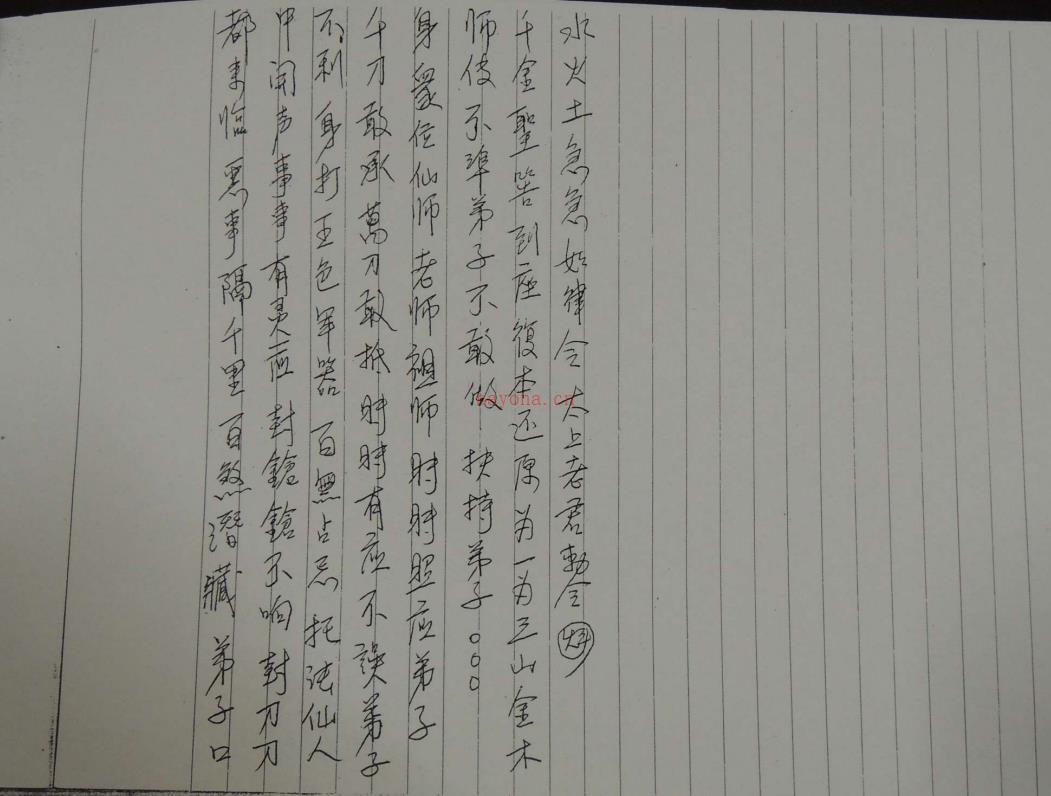 都来临 恶事隔千里 百煞潜藏 弟子口
中闻声事事有灵应 封鎗鎗不响 封刀刀
不利身打五色军器 百無占忌 托法仙人
千刀敢承萬刀敢抵时时有应不误弟子
身眾位仙师老师祖师时时照应弟子
师傅不準弟子不敢做 扶持弟子○○○
千金聖筶到座復本还原为一为三山金木
水火土急急如律令太上老君勅令
nayona.cn